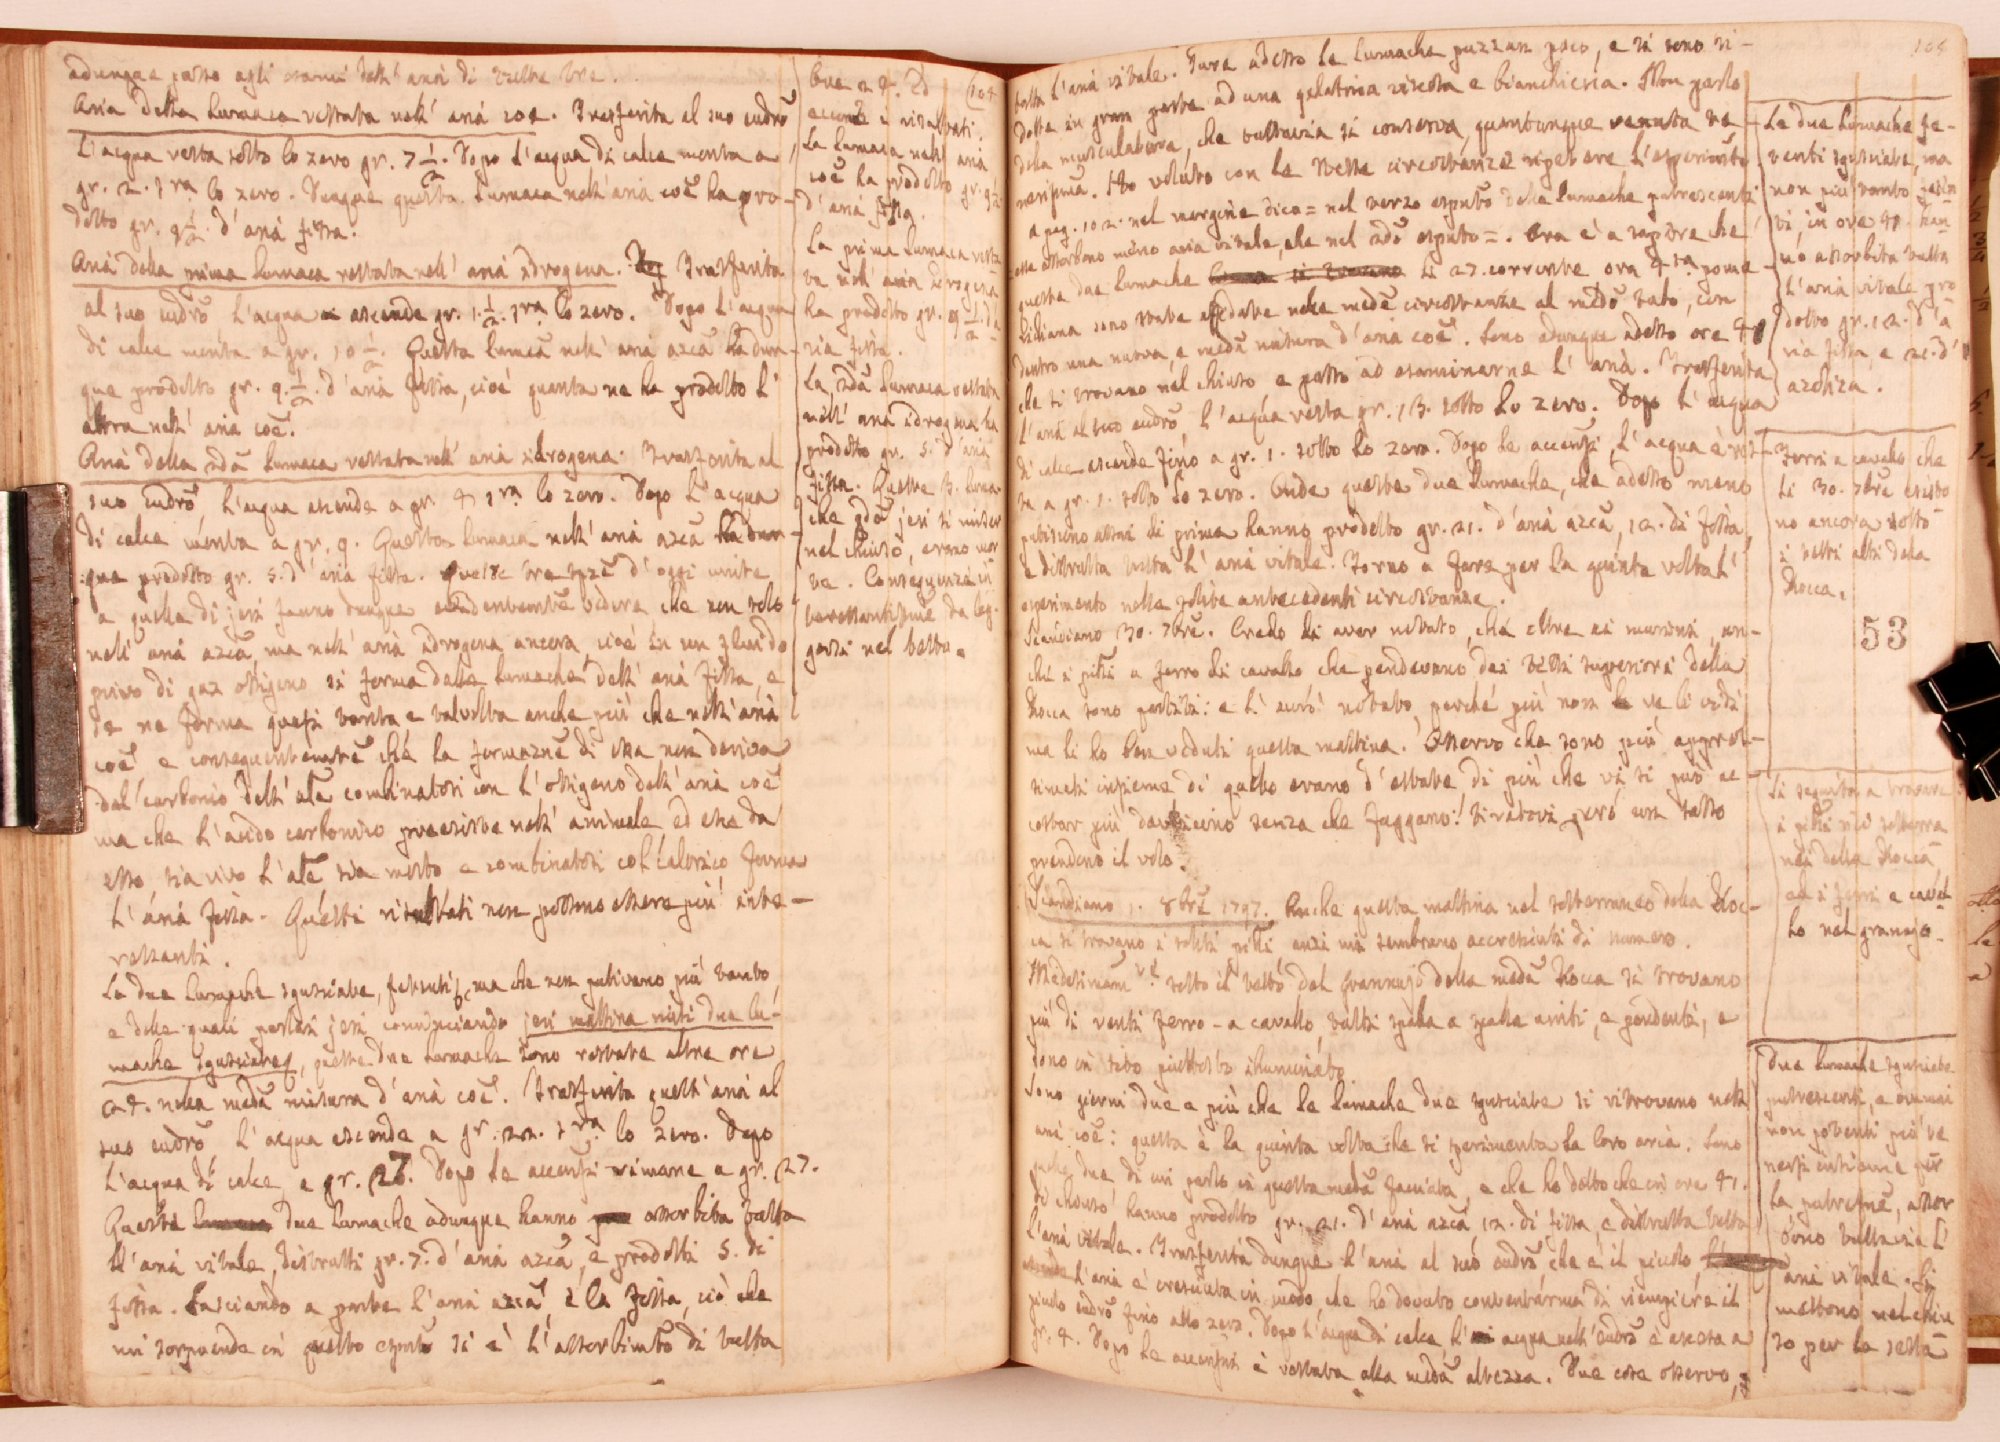 adunque passo agli esami dell' aria di tutte tre.
Aria della lumaca restata nell' aria coe. Trasferita al suo eudro
l'acqua resta sotto lo zero gr. 7 1/2. Dopo l'acqua di calce monta a
gr. 2. sra lo zero. Dunque questa lumaca nell' aria coe ha pro-
dotto gr. 9 1/2. d'aria fissa.
Aria della prima lumaca restata nell' aria idrogena. Trasferita
al suo eudro l'acqua ascende gr. 1. 1/2. sra lo zero. Dopo l'acqua
di calce monta a gr. 10 1/2. Questa lumaca nell' aria azca ha dun-
que prodotto gr. 9. 1/2. d'aria fissa, cioè quanta ne ha prodotto l'
altra nell' aria coe.
Aria della 2da lumaca restata nell' aria idrogena. Trasferita al
suo eudro, l'acqua ascende a gr. 4 sra lo zero. Dopo l'acqua
di calce monta a gr. 9. Questa lumaca nell' aria azca ha dun-
que prodotto gr. 5. d'aria fissa. Queste tre spze d'oggi unite
a quelle di jeri fanno dunque evidentemte vedere che non solo
nell' aria azca, ma nell' aria idrogena ancora, cioè in un fluido
privo di gaz ossigeno si forma dalle lumache dell' aria fissa, e
se ne forma quasi tanta e talvolta anche più che nell' aria
coe e conseguentemte che la formazne di essa non deriva
dal carbonio dell' ale combinatosi con l'ossigeno dell' aria coe
ma che l'acido carbonico preesiste nell' animale, ed esce da
esso, sia vivo l'ale sia morto e combinatosi col calorico forma
l'aria fissa. Questi risultati non possono essere più inte-
ressanti.
Le due lumache sgusciate, fetenti, ma che non pativano più tanto,
e delle quali parlasi jeri cominciando jeri mattina misi due lu-
mache sgusciate, queste due lumache sono restate altre ore
24. nella meda mistura d'aria coe. Trasferita quest' aria al
suo eudro, l'acqua ascende a gr. 22. sra lo zero. Dopo
l'acqua di calce a gr. 27. Dopo le accensi rimane a gr. 27.
Queste due lumache adunque hanno assorbita tutta
l'aria vitale, distrutti gr. 7. d'aria azca, e prodotti 5. di
fissa. Lasciando a parte l'aria azca e la fissa, ciò che
mi sorprende in questo esperto si è l'assorbimto di tutta
104
bre 24. Ed
eccone i risultati.
La lumaca nell' aria
coe ha prodotto gr. 9 1/2
d'aria fissa.
La prima lumaca resta-
ta nell' aria idrogena
ha prodotto gr. 9 1/2 d'a
ria fissa.
La 2da lumaca restata
nell' aria idrogena ha
prodotto gr. 5. d'aria
fissa. Queste 3. luma
che qdo jeri si miser
nel chiuso, erano mor
te. Conseguenza in
teressantissime da leg-
gersi nel testo.
104
tutta l'aria vitale. Pure adesso le lumache puzzan poco, e si sono ri-
dotte in gran parte ad una gelatina viscosa e bianchiccia. Non parlo
della muscolatura, che tuttavia si conserva, quantunque venuta te-
nerissima. Ho voluto con le stesse circostanze ripetere l'esperimto
a pag. 102. nel margine dico = nel terzo esputo delle lumache putrescenti
esse assorbono meno aria vitale, che nel 2do esputo =. Ora è a sapere che
queste due lumache li 27. corrente ora 4ta pome-
ridiana sono state vedute nelle mede circostanze al medo tubo, con
dentro una nuova e meda mistura d'aria coe. Sono adunque adesso ore 41
che si trovano nel chiuso e passo ad esaminarne l'aria. Trasferita
l'aria al suo eudro, l'acqua resta gr. 13. sotto lo zero. Dopo l'acqua
di calce ascende fino a gr. 1. sotto lo zero. Dopo le accensi, l'acqua è res-
ta a gr. 1. sotto lo zero. Onde queste due lumache, che adesso meno
putiscono assai di prima hanno prodotto gr. 21. d'aria azca, 12. di fissa,
e distrutta tutta l'aria vitale. Torno a fare per la quinta volta l'
esperimento nelle solite antecedenti circostanze.
Scandiano 30. 7bre. Credo di aver notato, che oltre ai murini, an-
chi i pilli a ferro di cavallo che pendevano dai vòlti superiori della
Rocca sono partiti: e l'aurò notato, perché più non ve li vidi
ma li ho ben veduti questa mattina. Osservo che sono più appros-
simati insieme di quello erano d'estate, di più che vi si può ac-
costar più davvicino senza che fuggano: tiratovi però un sasso
prendono il volo.
Scandiano 1. 8bre 1797. Anche questa mattina nel sotterraneo della Roc-
ca si trovano i soliti pilli anzi mi sembrano accresciuti di numero.
Medesimame sotto il volto del Grannajo della meda Rocca si trovano
più di venti ferro-a cavallo, tutti spalla a spalla uniti, e pendenti, e
sono in sito piuttosto illuminato.
Sono giorni due e più che le lumache due sgusciate si ritrovano nell'
aria coe: questa è la quinta volta che si sperimenta la loro aria. Sono
quelle due di cui parlo in questa meda facciata, e che ho detto che in ore 41.
di chiuso hanno prodotto gr. 21. d'aria azca, 12. di fissa, e distrutta tutta
l'aria vitale. Trasferita dunque l'aria al suo eudro che è il piccolo
l'aria è cresciuta in modo, che ho dovuto contentarmi di riempiere il
piccolo eudro fino allo zero. Dopo l'acqua di calce, l'acqua nell' eudro è ascesa a
gr. 4. Dopo le accensi è restata alla meda altezza. Due cose osservo,
Le due lumache fe-
tenti sgusciate, ma
non più tanto
in ore 41. han-
no assorbita tutta
l'aria vitale pro
dotto gr. 12. d'a
ria fissa, e 21. d'
azotica.
Ferri a cavallo che
li 30. 7bre esisto
no ancora sotto
i volti alti della
Rocca.
53
Si seguita a trovare
i pilli nei sotterra
nei della Rocca
ed i ferri a caval
lo nel granajo.
Due lumache sgusciate
putrescenti, e oramai
non potenti più te
nersi insieme per
la putredine, assor
bono tuttavia l'
aria vitale. Si
mettono nel chiu
so per la sesta